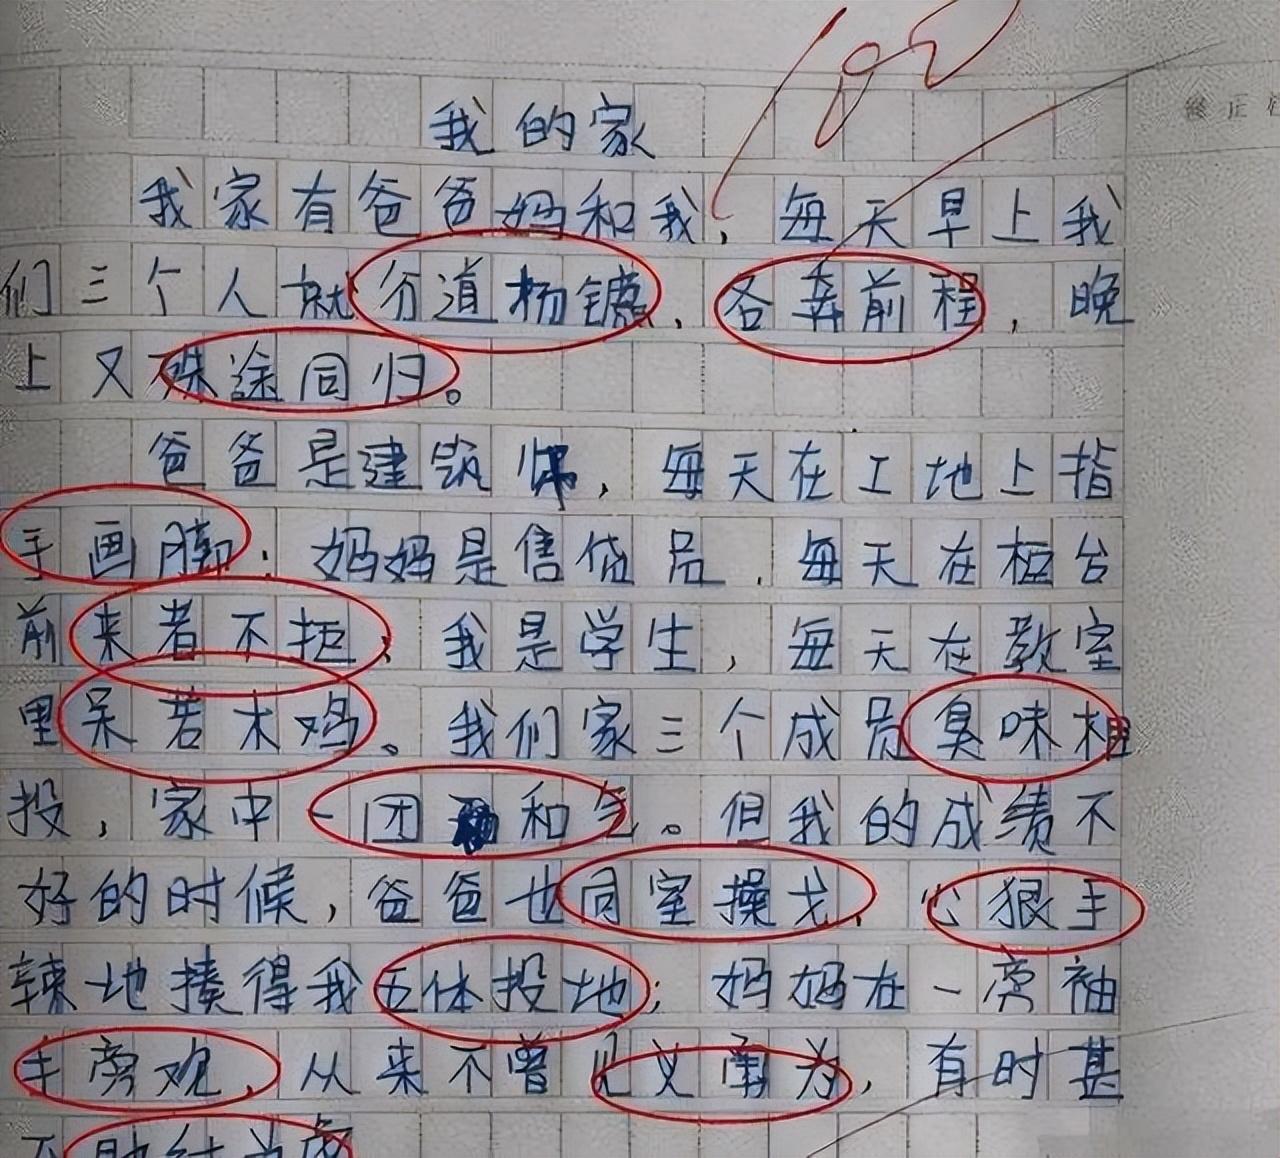 100
修正
我的家
我家有爸爸妈和我，每天早上我
们三个人就分道杨镳，各奔前程，晚
上又殊途同归。
爸爸是建筑师，每天在工地上指
手画脚；妈妈是售货员，每天在柜台
前来者不拒；我是学生，每天在教室
里呆若木鸡。我们家三个成员臭味相
投，家中一团和气。但我的成绩不
好的时候，爸爸也同室操戈，心狠手
辣地揍得我五体投地；妈妈在一旁袖
手旁观，从来不曾见义勇为，有时甚